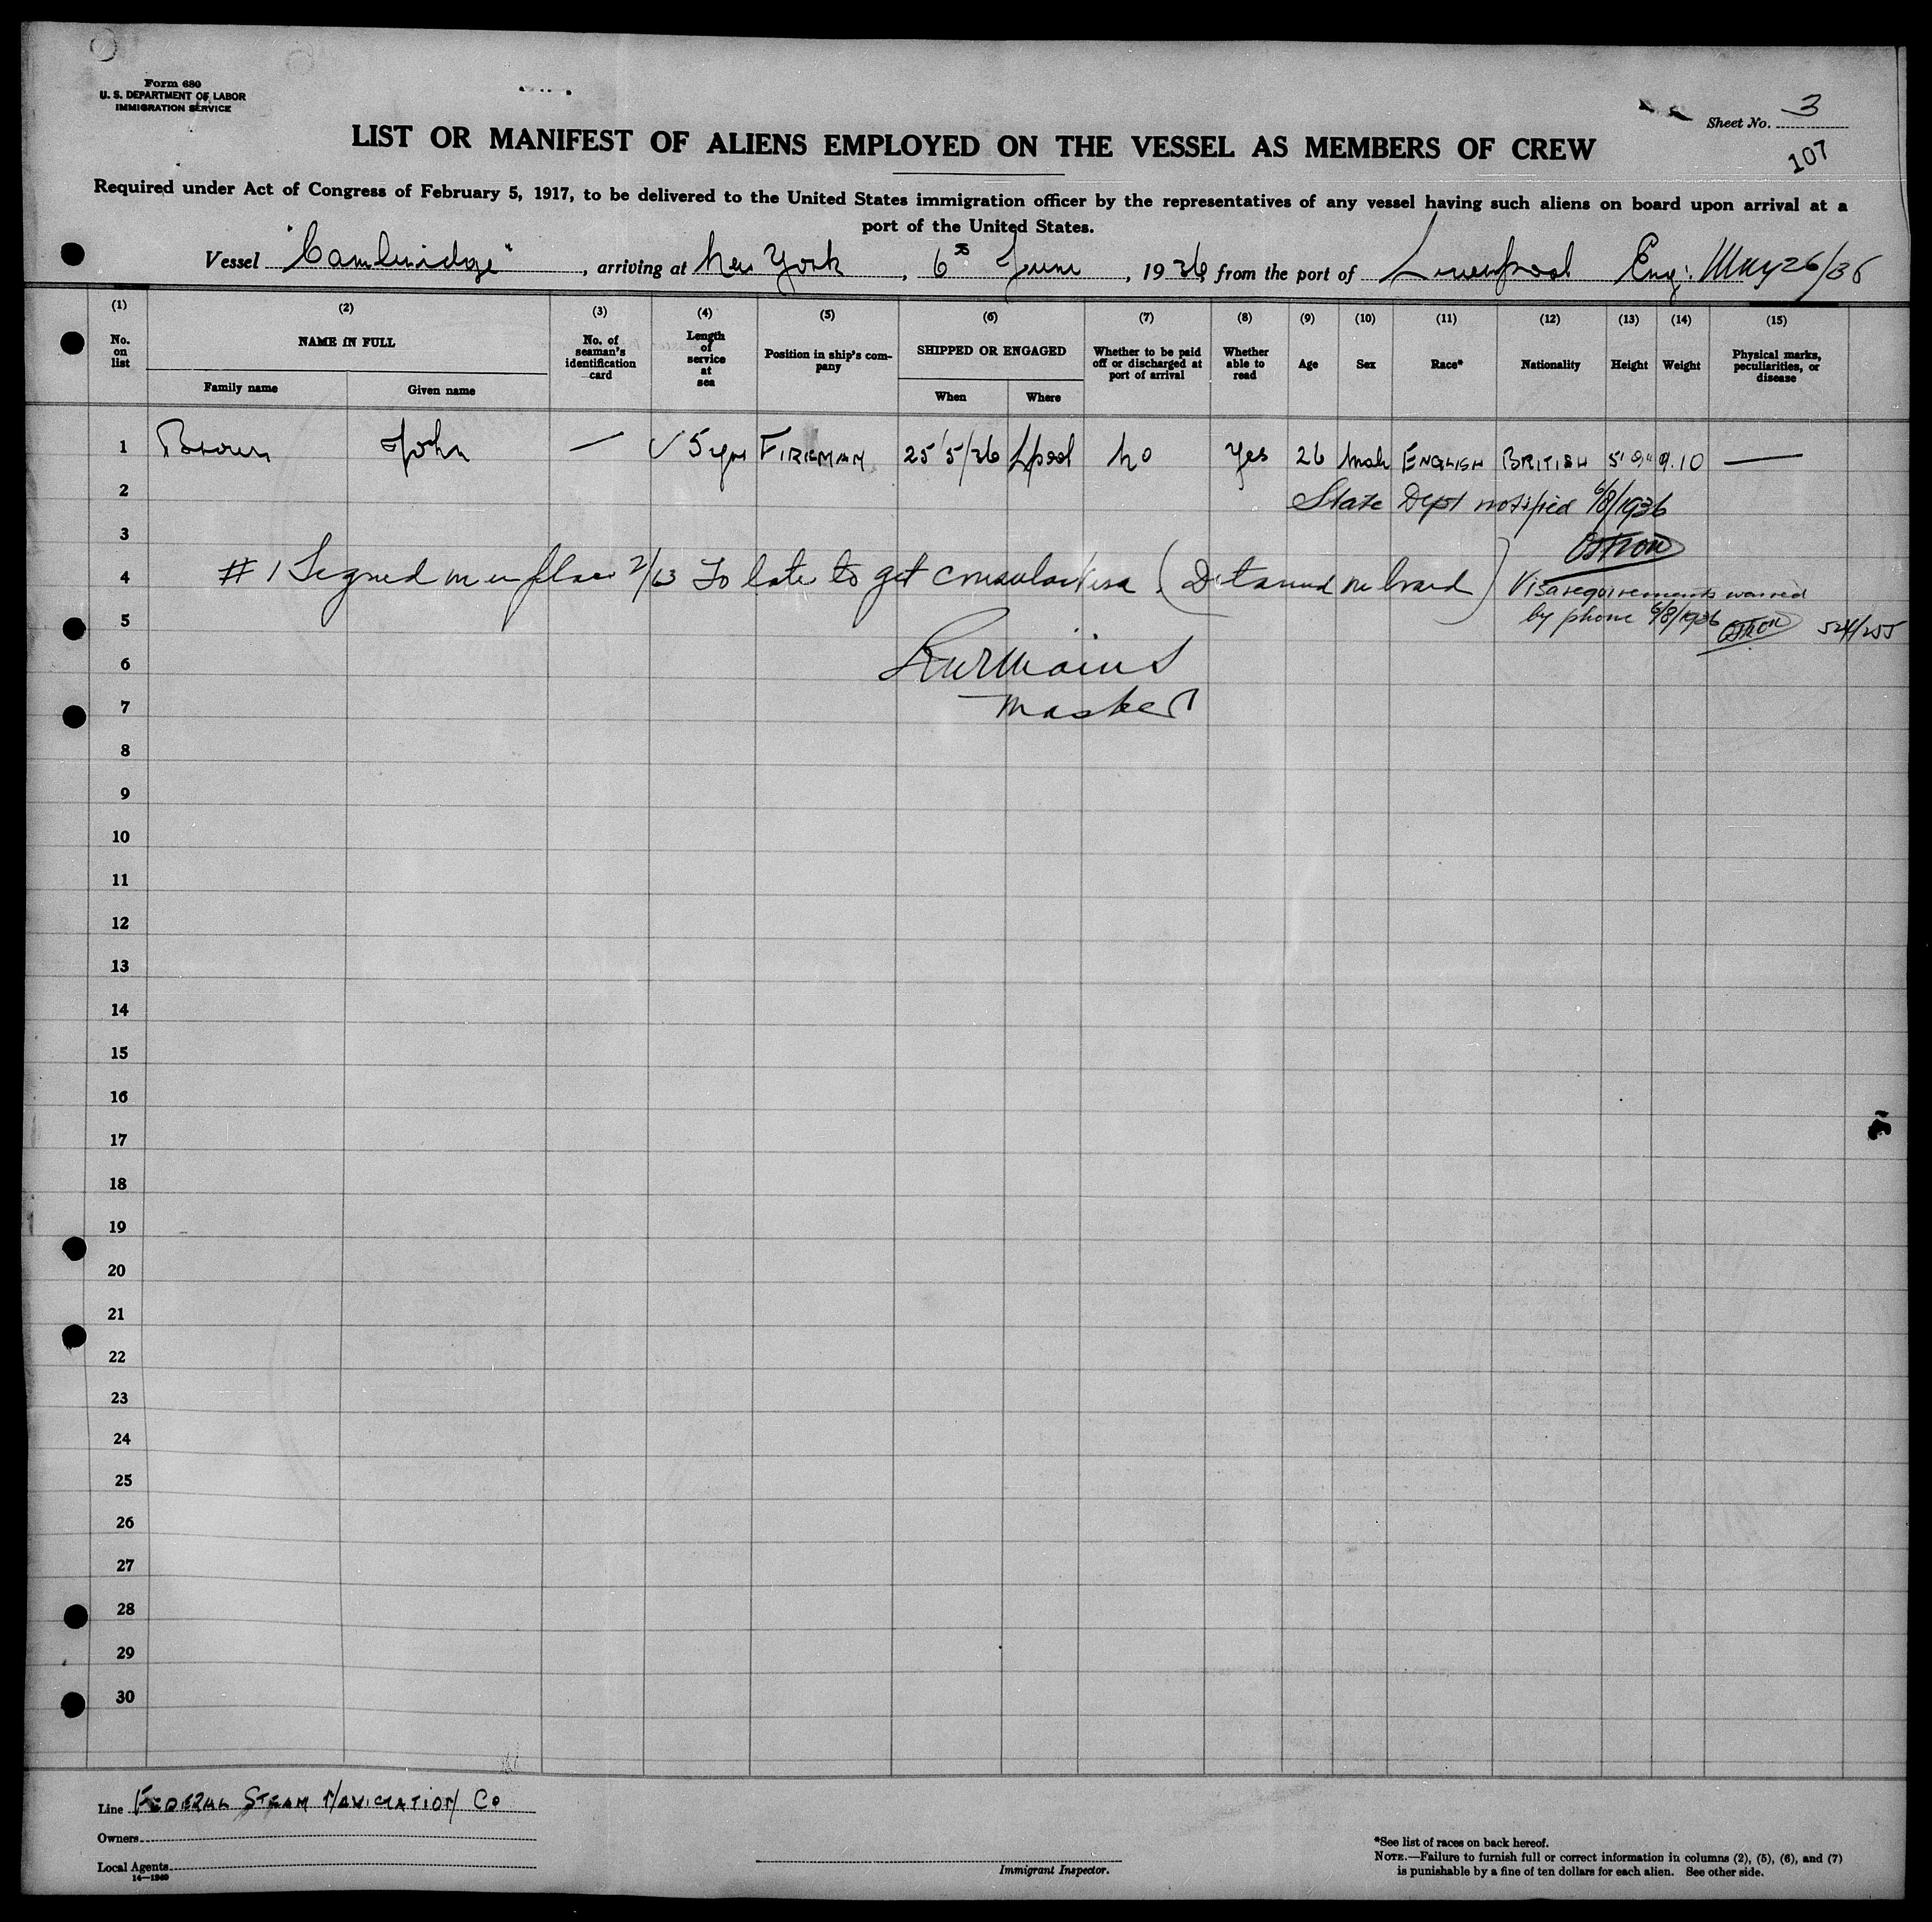 Form 680
U. S. DEPARTMENT OF LABOR
IMMIGRATION SERVICE
Sheet No. 3
107
LIST OR MANIFEST OF ALIENS EMPLOYED ON THE VESSEL AS MEMBERS OF CREW
Required under Act of Congress of February 5, 1917, to be delivered to the United States immigration officer by the representatives of any vessel having such aliens on board upon arrival at a
port of the United States.
Vessel "Cambridge", arriving at New York, 6th June, 1936 from the port of Liverpool Eng. May 26/36
(1) (2) (3) (4) (5) (6) (7) (8) (9) (10) (11) (12) (13) (14) (15)
No. on list
NAME IN FULL
Family name
Given name
No. of seaman's identification card
Length of service at sea
Position in ship's company
SHIPPED OR ENGAGED
When
Where
Whether to be paid off or discharged at port of arrival
Whether able to read
Age
Sex
Race*
Nationality
Height
Weight
Physical marks, peculiarities, or disease
1 Brown John — √ 5 yrs FIREMAN 25/5/36 Lpool No Yes 26 Male ENGLISH BRITISH 5' 9" 9.10 —
2 State Dept notified 6/8/1936
3
4 # 1 Signed on in place 2/13 To late to get consular visa (Detained on board) Visa requirements waived
5 by phone 6/8/1936 524/255
6
7 Master
8
9
10
11
12
13
14
15
16
17
18
19
20
21
22
23
24
25
26
27
28
29
30
Line FEDERAL STEAM NAVIGATION Co
Owners
Local Agents
14—1240
Immigrant Inspector.
*See list of races on back hereof.
NOTE.—Failure to furnish full or correct information in columns (2), (5), (6), and (7)
is punishable by a fine of ten dollars for each alien. See other side.